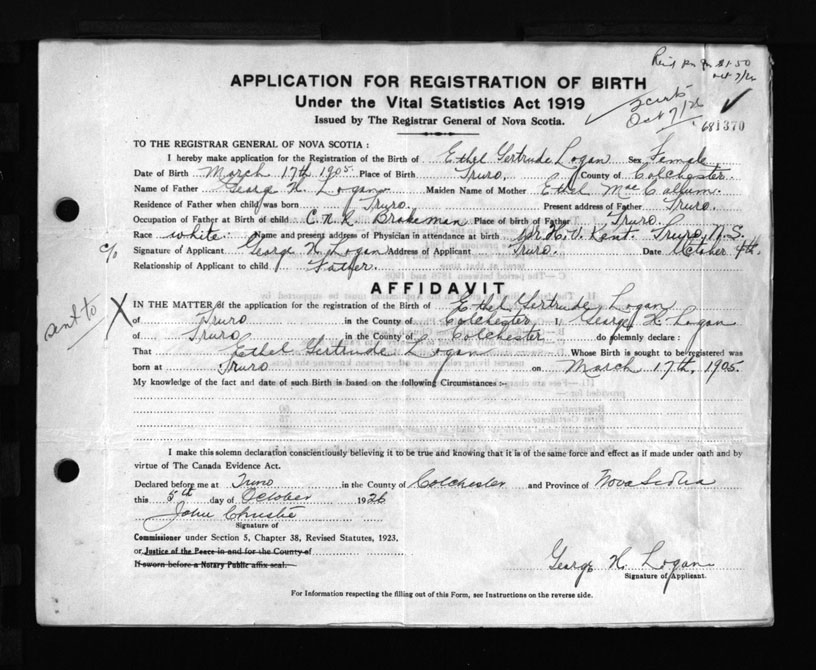 Rec'd for $1.50
Oct 7/26
APPLICATION FOR REGISTRATION OF BIRTH
Under the Vital Statistics Act 1919
2 certs
Oct 7/26
Issued by The Registrar General of Nova Scotia.
681370
TO THE REGISTRAR GENERAL OF NOVA SCOTIA :
I hereby make application for the Registration of the Birth of Ethel Gertrude Logan Sex Female
Date of Birth March 17th 1905. Place of Birth Truro, County of Colchester.
Name of Father George H. Logan Maiden Name of Mother Ethel MacCallum.
Residence of Father when child was born Truro. Present address of Father Truro.
Occupation of Father at Birth of child C.N.R. Brakeman Place of birth of Father Truro.
Race white. Name and present address of Physician in attendance at birth Dr. H. V. Kent. Truro, N.S.
c/o Signature of Applicant George H. Logan Address of Applicant Truro. Date October 4th.
Relationship of Applicant to child Father.
AFFIDAVIT
sent to X IN THE MATTER of the application for the registration of the Birth of Ethel Gertrude Logan
of Truro in the County of Colchester I, George H. Logan
of Truro in the County of Colchester do solemnly declare :
That Ethel Gertrude Logan Whose Birth is sought to be registered was
born at Truro on March 17th, 1905.
My knowledge of the fact and date of such Birth is based on the following Circumstances :-
I make this solemn declaration conscientiously believing it to be true and knowing that it is of the same force and effect as if made under oath and by
virtue of The Canada Evidence Act.
Declared before me at Truro in the County of Colchester and Province of Nova Scotia
this 5th day of October 1926
John Christie
Signature of
Commissioner under Section 5, Chapter 38, Revised Statutes, 1923,
or Justice of the Peace in and for the County of
If sworn before a Notary Public affix seal.
George H. Logan
Signature of Applicant.
For Information respecting the filling out of this Form, see Instructions on the reverse side.